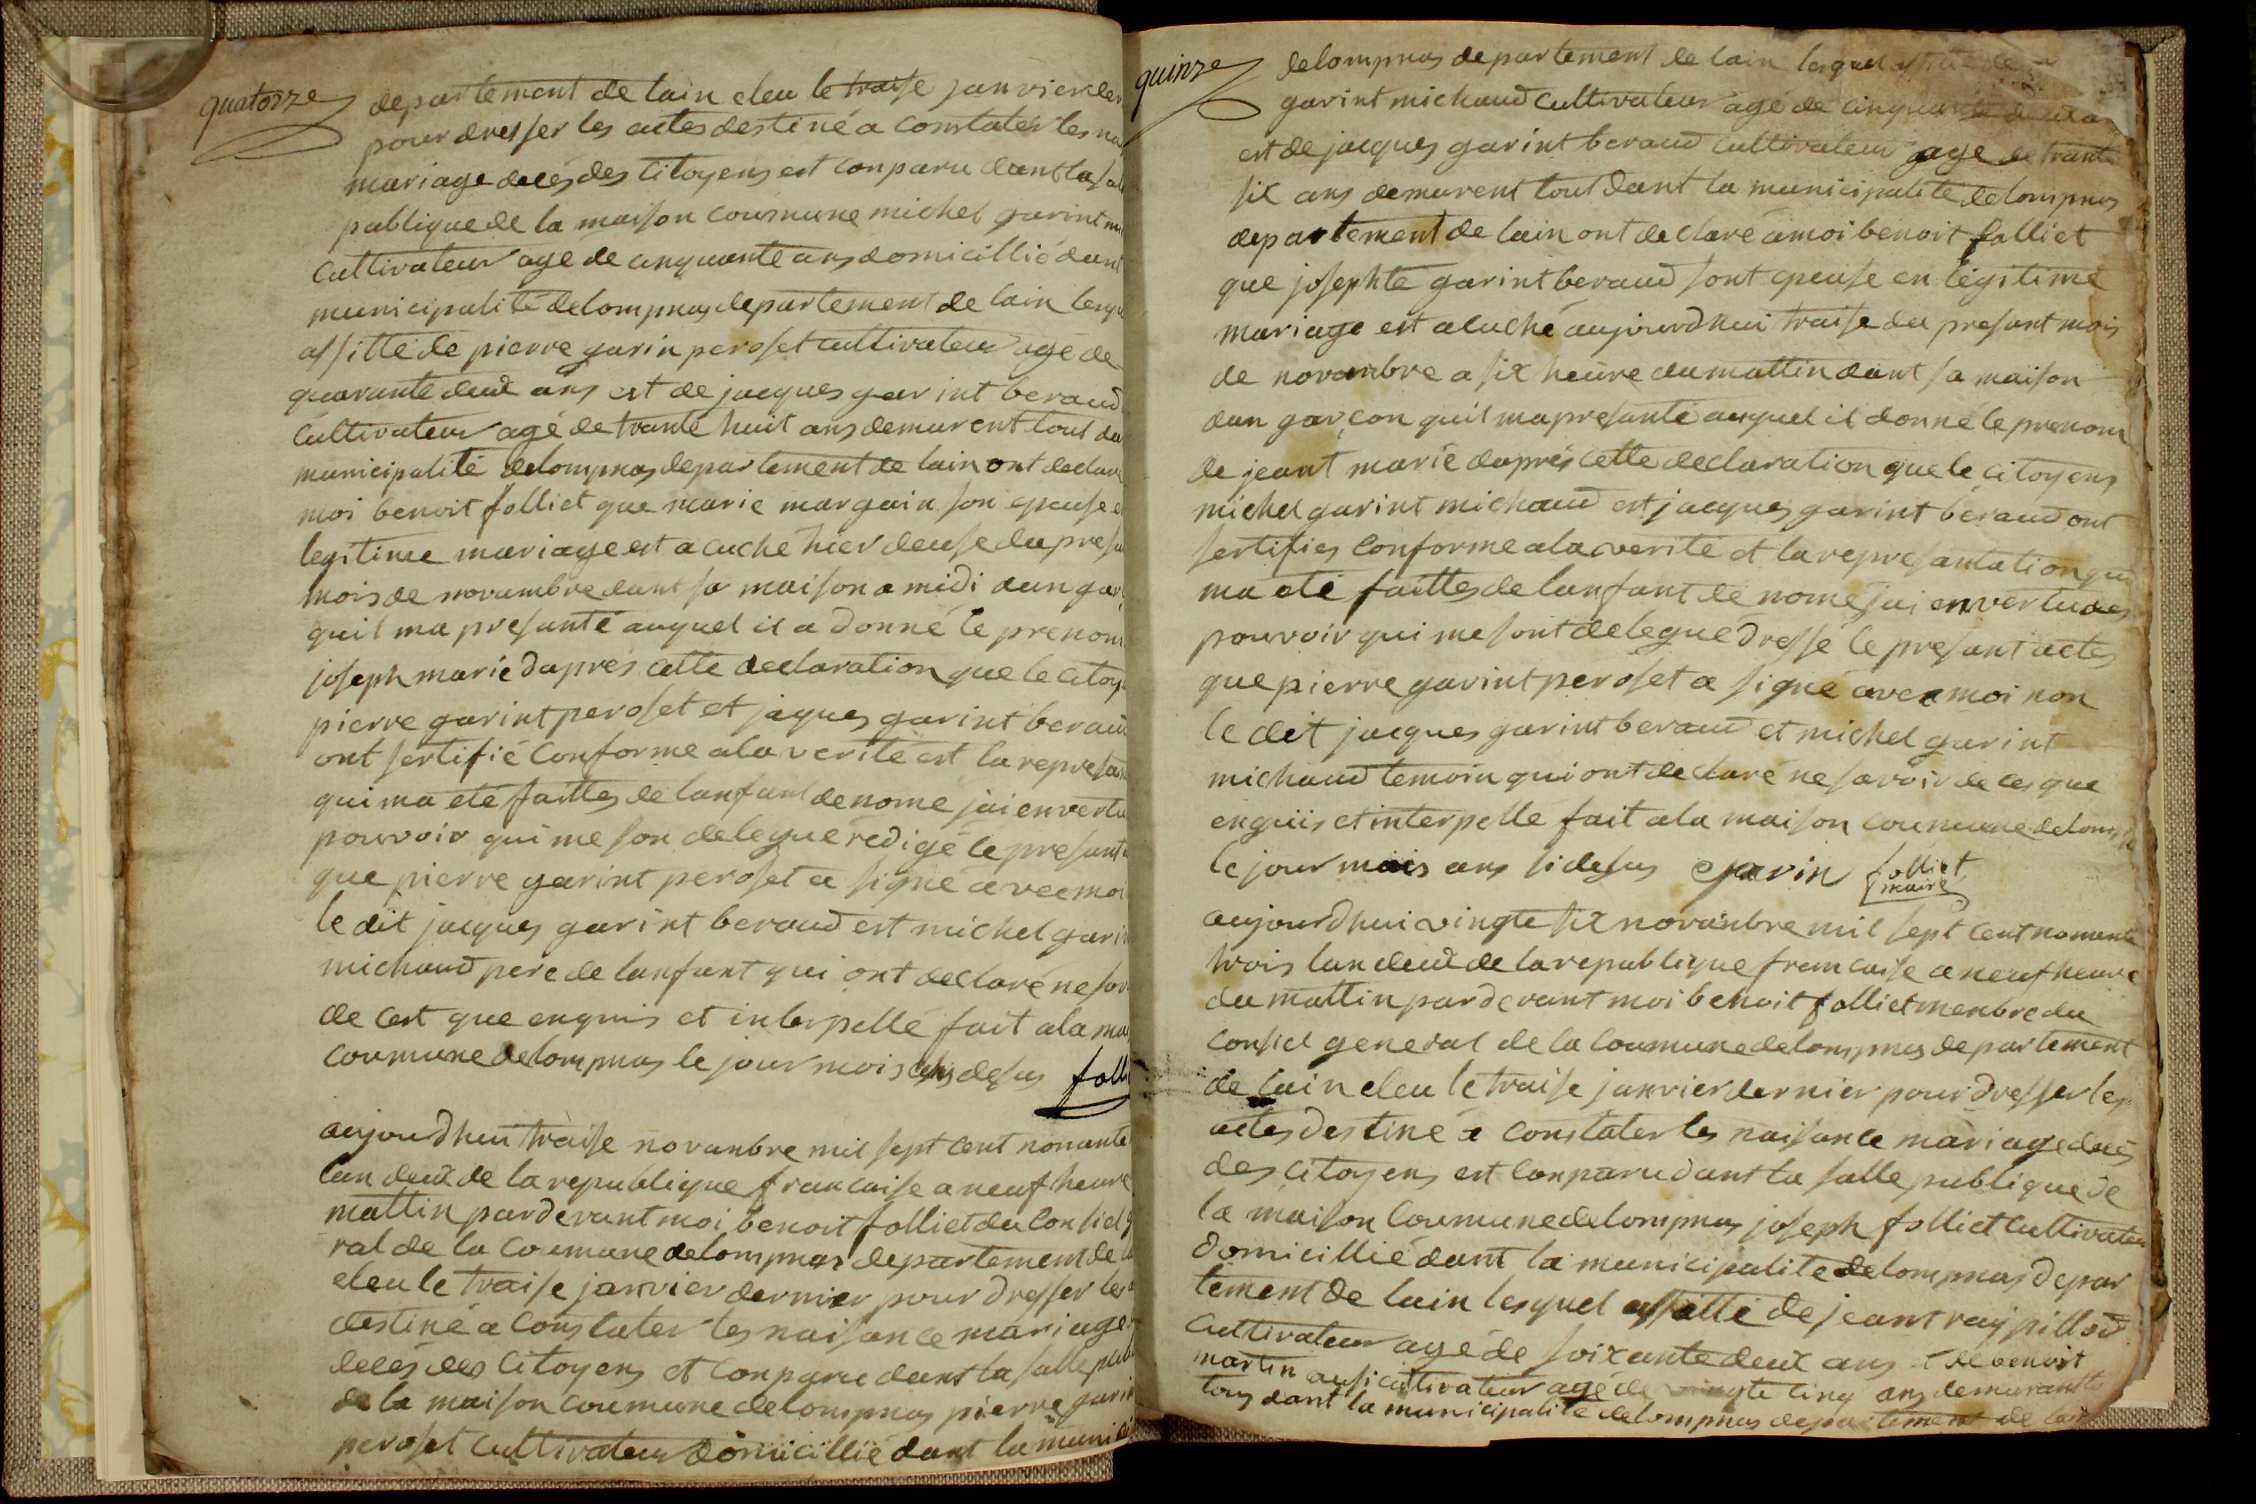 quatorze
departement de lain eleu le traise janvier der
pour dresser les actes destiné a constater les nai
mariage decés des Citoyens est conparu dant la sal
publique de la maison coumune michel garint mi
Cultivateur agé de cinquante ans domicillié dant
municipalité delompnas departement de lain lesqu
assitté de pierre garin peroset cultivateur agé de
quarante deux ans est de jacques garint beraud
Cultivateur agé de trante huit ans demurent tout da
municipalité delompnas departement de lain ont declaré
moi benoit folliet que marie margain son epeuse e
legitime mariage est a cuché hier deuse du presa
mois de novambre dant sa maison a midi dun gar
quil ma presanté auquel il a donné le prenom
joseph marie daprés cette declaration que le citoye
pierre garint peroset et jaques garint beraud
ont sertifié Conforme a la verité est la represan
qui ma eté faittes de lanfant denomé jai en vertu
pouvoir qui me son delegué redigé le presant
que pierre garint peroset a signé avec moi
le dit jacques garint beraud est michel garin
michaud pere de lanfant qui ont declaré ne sav
de cest que enquis et interpellé fait a la mai
coumune delompnas le jour mois ans desus folli
aujourdhui traise novanbre mil sept cent nonante
lan deux de la republique francaise a neuf heure
mattin pardevant moi benoit folliet du Consiel g
ral de la Coumune delompnas departement de l
eleu le traise janvier dernier pour dresser les
destiné a constater les naisance mariage
decés des Citoyens et conparu dant la salle pub
de la maison coumune delompnas pierre garin
peroset cultivateur domicillié dant la munici
quinze
delompnas departement de lain lesquel assitté de
garint michaud cultivateur agé de cinquante deux an
est de jacques garint beraud cultivateur agé de trante
six ans demurent tout dant la municipalité delompnas
departement de lain ont declaré a moi benoit folliet
que josephte garint beraud sont epeuse en legitime
mariage est acuché aujourdhui traise du presant mois
de novanbre a six heure du mattin dant sa maison
dun garçon quil ma presanté auquel il donné le prenom
de jeant marie daprés cette declaration que le citoyens
michel garint michaud est jacques garint beraud ont
sertifies conforme a la verité et la represantation qui
ma eté faittes de lanfant de nomé jai en vertu des
pouvoir qui me sont delegué dressé le presant actes
que pierre garint peroset a signé avec moi non
le dit jacques garint beraud et michel garint
michaud temoin qui ont declaré ne savoir de ces que
enquis et interpellé fait a la maison coumune delomp
le jour mois ans sidesus garin folliet
maire
aujourdhui vingte six novanbre mil sept cent nonante
trois lan deux de la republique francaise a neuf heure
du mattin pardevant moi benoit folliet menbre du
consiel general de la Coumune delompnas departement
de lain eleu le traise janvier dernier pour dresser les
actes destiné a constater les naisance mariage decés
des Citoyens est conparu dant la salle publique de
la maison Coumune delompnas joseph folliet cultivateu
domicillié dant la municipalité delompnas depar
tement de lain lesquel assitté de jeant ray pillod
cultivateur agé de soixante deux ans et de benoit
martin ausi cultivateur agé de vingte cinq ans demurant
tous dant la municipalité delompnas departement de lain